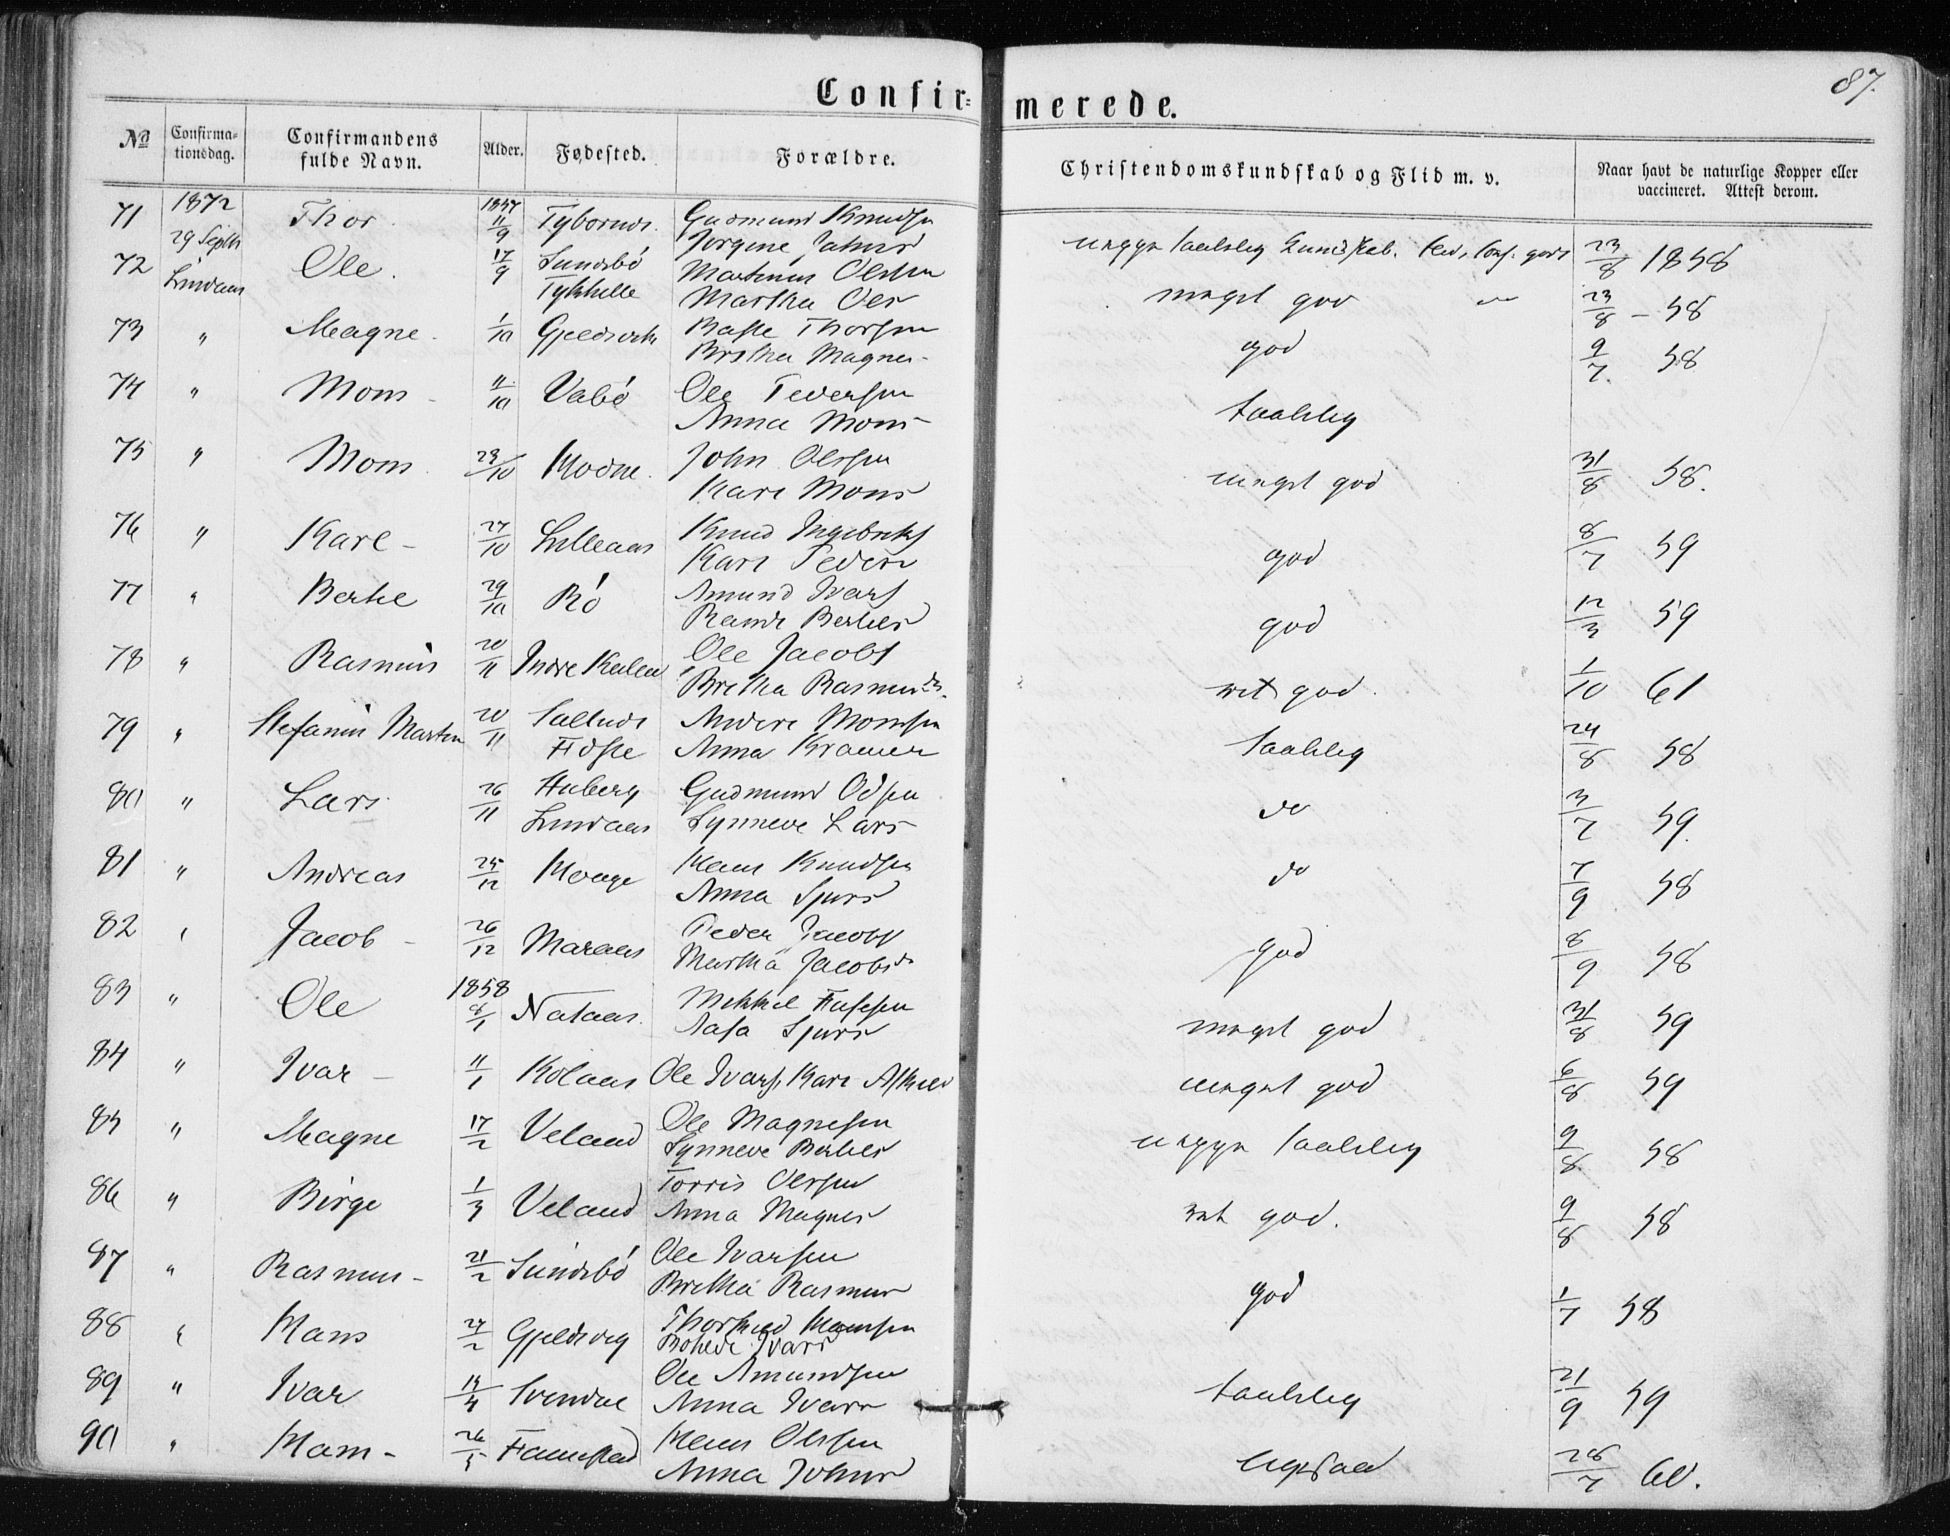 87.
Confir=merede.
No Confirmationsdag. Confirmandens fulde Navn. Alder. Fødested. Forældre. Christendomskundskab og Flid m. v. Naar havt de naturlige Kopper eller vaccineret. Attest derom.
71 1872 29 Septbr Lindaas Thor 1857 11/9 Gudmund Knudsen Jorgine Johns taalelig Kundskab. 23/8 1858
72 Ole. 17/9 Sundsbö Martinus Olssen Martha Ols meget god do 23/8 - 58
73 " Magne 1/10 Gjeldsvik Thorsen Britha Magnes god 9/7 58
74 " Mons 11/10 Vabö Ole Pedersen Anna Mons taalelig
75 " Mons 23/10 John Olssen Kari Mons meget god 31/8 58.
76 " Kari 27/10 Lilleaas Knud Ingebrikts Kari Peders god 8/7 59
77 " Berhe 29/10 Rö Amund Ivars Randi Berhes god 12/3 59
78 " Rasmus 20/11 Indre Ole Jacobs Britha Rasmusdr. ret god. 1/10 61
79 " Stefanus Martin 20/11 Anders Monssen Anna Kramer taalelig 24/8 58
80 " Lars 26/11 Lindaas Gudmund Odsen Synneve Lars do 3/7 59
81 " Andreas 25/12 Knudsen Anna Sjurs do 7/9 58
82 " Jacob 26/12 Maraas Peder Jacobs Martha Jacobsdr god 8/9 58
83 " Ole 1858 8/1 Nataas Mikkel Aasa Sjurs meget god 31/8 59
84 " Ivar 11/1 Kolaas Ole Ivars, Kari meget god 6/8 59
85 " Magne 17/2 Veland Ole Magnesen Synneve Berhes taalelig 9/8 58
86 " Birge 1/3 Veland Torris Olssen Anna Magnes ret god. 9/8 58
87 " Rasmus 21/2 Sundsbö Ole Ivarsen Britha Rasmus god 1/7 58
88 " Hans 27/2 Gjeldsvig Hanssen Ivars
89 " Ivar 14/4 Ole Amundsen Anna Ivars taalelig 21/9 59
90 " Hans 26/5 Hans Olssen Anna Johns ligesaa 28/7 60.